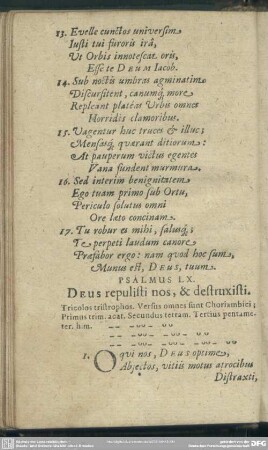 13. Evelle cunctos universim
Iusti tui furoris irâ,
Ut Orbis innotescat oris,
Esse te DEUM Iacob.
14. Sub noctis umbras agminatim
Discursitent, canumq́; more
Repleant platéas Urbis omnes
Horridis clamoribus.
15. Vagentur huc truces & illuc;
Mensasq́; quærant ditiorum:
At pauperum victus egentes
Vana fundent murmura.
16. Sed interim benignitatem
Ego tuam primo sub Ortu,
Periculo solutus omni
Ore lato concinam.
17. Tu robur es mihi, salusq́;
Te perpeti laudum canore
Præfabor ergo: nam quod hoc sum,
Munus est, DEUS, tuum.
PSALMUS LX.
DEUS repulisti nos, & destruxisti.
Tricolos tristrophos. Versus omnes sunt Choriambici;
Primus trim. acat. Secundus tetram. Tertius pentame-
ter. h.m.
1. O qui nos, DEUS optime,
Abjectos, vitiis motus atrocibus
Distraxti,